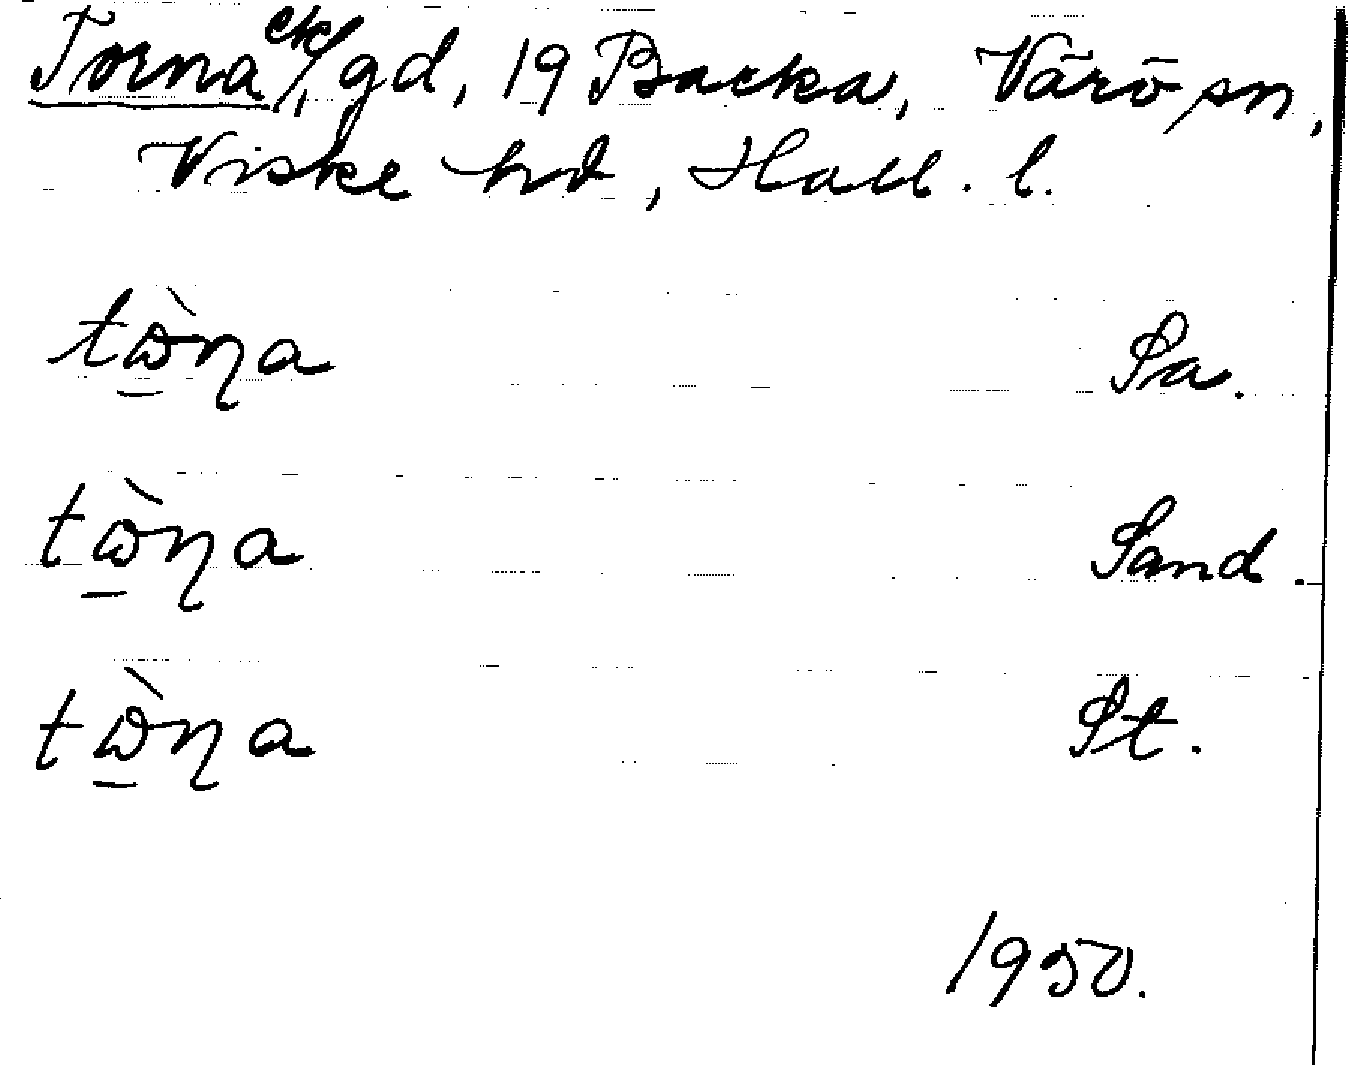 Torna ckl, gd, 19 Backa, Värö sn,
Viske hd, Hall. l.
tὼ̲ɳa Sa.
tὼ̲ɳa Sand.
tὼ̲ɳa St.
1950.